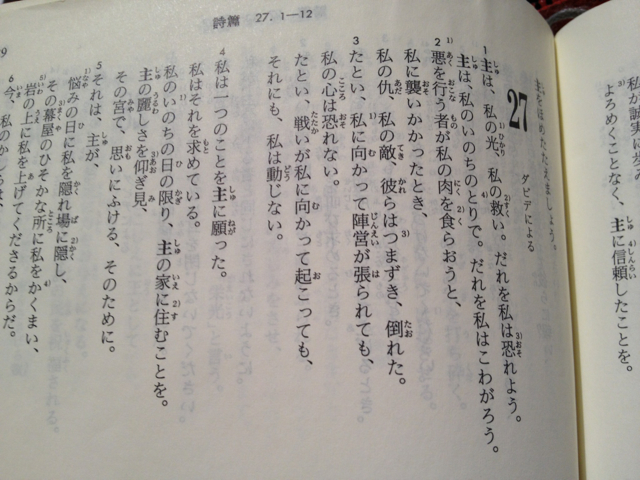 詩篇 27. 1―12
私が誠実に歩み
よろめくことなく、主に信頼したことを。
主をほめたたえましょう。
27
ダビデによる
1 主は、私の光、私の救い。だれを私は恐れよう。
主は、私のいのちのとりで。だれを私はこわがろう。
2 悪を行う者が私の肉を食らおうと、
私に襲いかかったとき、
私の仇、私の敵、彼らはつまずき、倒れた。
3 たとい、私に向かって陣営が張られても、
私の心は恐れない。
たとい、戦いが私に向かって起こっても、
それにも、私は動じない。
4 私は一つのことを主に願った。
私はそれを求めている。
私のいのちの日の限り、主の家に住むことを。
主の麗しさを仰ぎ見、
その宮で、思いにふける、そのために。
5 それは、主が、
悩みの日に私を隠れ場に隠し、
その幕屋のひそかな所に私をかくまい、
岩の上に私を上げてくださるからだ。
6 今、私のかしらは、